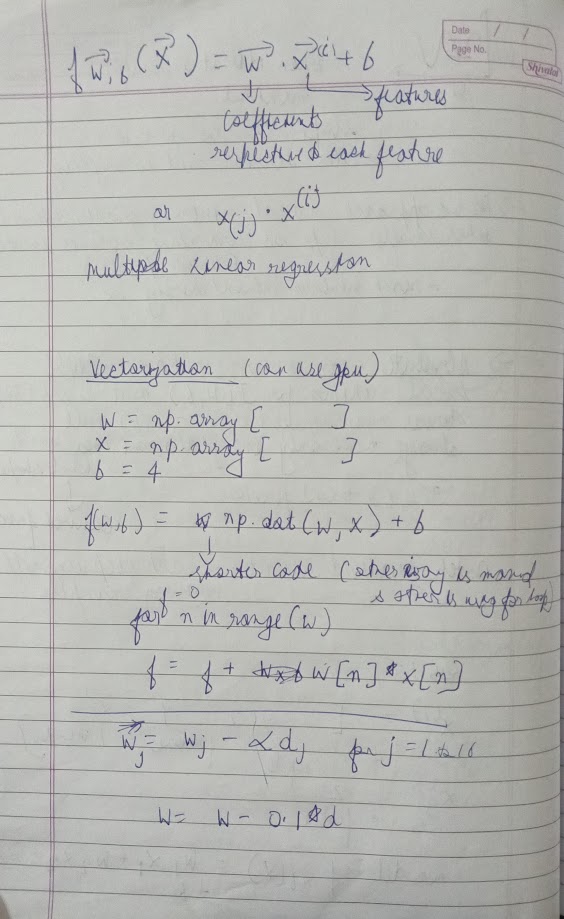 Date / /
Page No.
Shivalal
f w⃗,b (x⃗) = w⃗ . x⃗^(i) + b
features
coefficients
respective to each feature
or x(j) . x^(i)
multiple linear regression
Vectorization (can use gpu)
w = np.array [ ]
x = np.array [ ]
b = 4
f(w,b) = np.dot(w, x) + b
shorter code (other way is manual
& other is using for loop)
f = 0
for n in range(w)
f = f + w[n] * x[n]
w⃗j = wj - αdj for j = 1 to 16
w = w - 0.1 * d